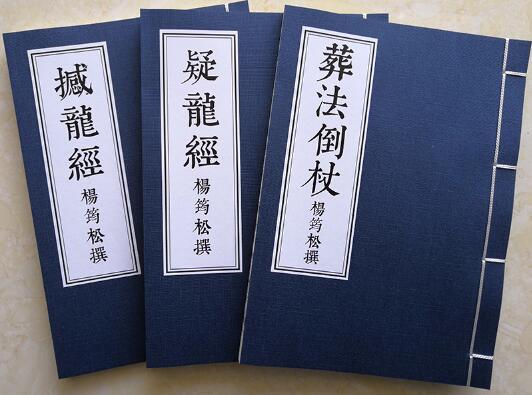 撼龍經 楊筠松撰
疑龍經 楊筠松撰
葬法倒杖 楊筠松撰